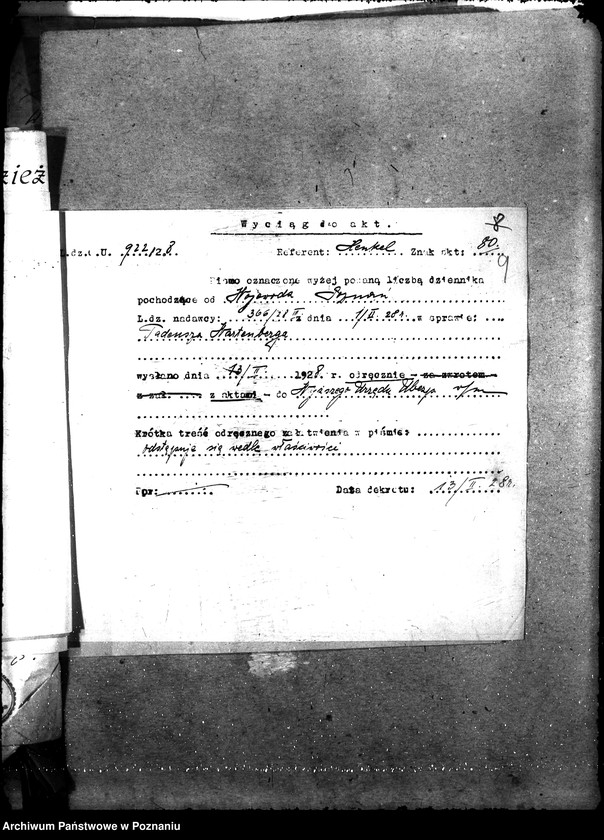 zież
Wyciąg do akt.
8
L.dz. U. 922/28 Referent: Henkel Znak akt: 80
9
Pismo oznaczone wyżej podaną liczbą dziennika
pochodzące od Wojewoda Poznań
L.dz. nadawcy: 366/28 II z dnia 1/II 28 r. w sprawie:
Tadeusza Hartenberga
wysłano dnia 13/II. 1928 r. odręcznie - ze zwrotem -
z zał. z aktami - do Urzędu w/m
Krótka treść odręcznego załatwienia w piśmie:
odstępuję się wedle właściwości
Data dekretu: 13/II 28 r.
Archiwum Państwowe w Poznaniu